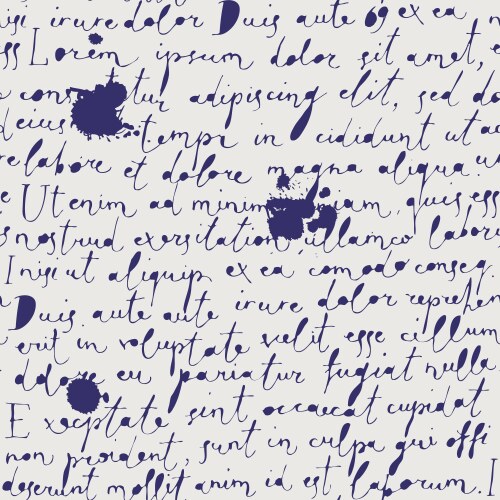 nisi irure dolor Duis aute ex ea
Lorem ipsum dolor sit amet,
tur adipiscing elit, sed do
eius tempr in cididunt ut
labore et dolore magna aliqua
Ut enim ad minim quis
nostrud exersitation ullamco
I nisi ut aliquip ex ea comodo conseq
Duis aute aute irure dolor reprehen
erit in voluptate velit esse cillum
dolore eu pariatur fugiat nulla
Exceptate sint occaecat cupidat
non proident, sunt in culpa qui offi
deserunt mollit anim id est, laporum. I